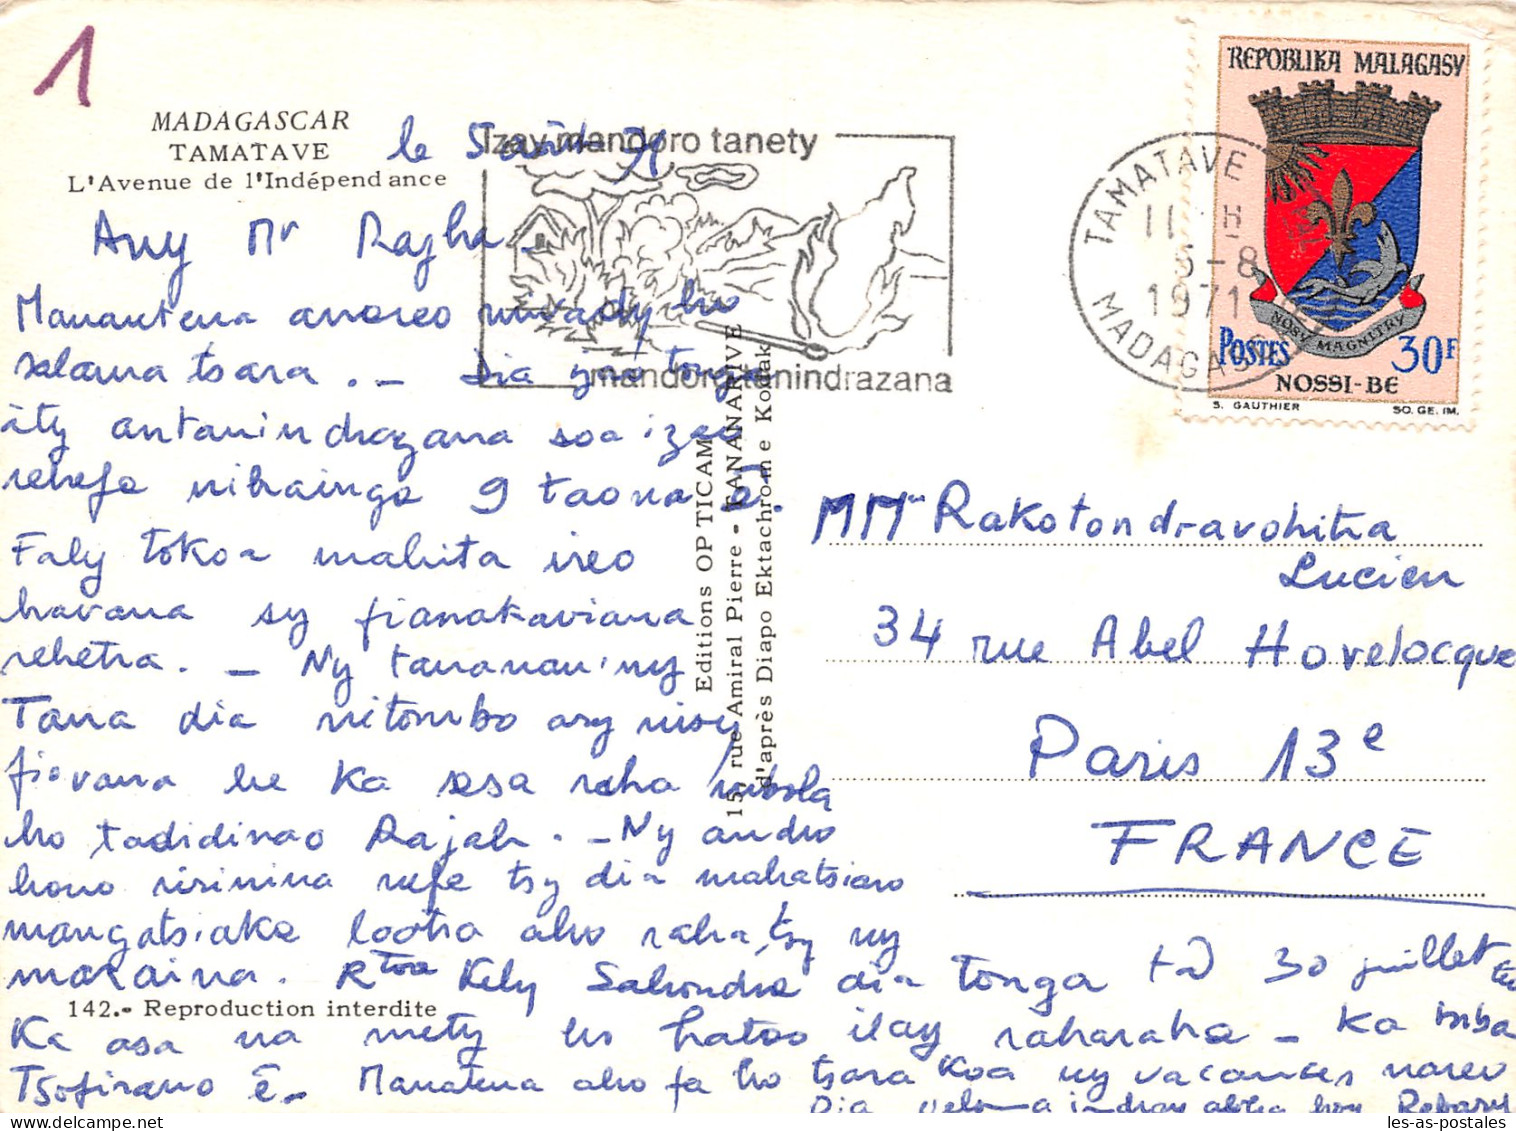 1
MADAGASCAR
TAMATAVE
L'Avenue de l'Indépendance
Izay mandoro tanety
mandoro tanindrazana
TAMATAVE
11 H
5-8
1971
MADAGASCAR
REPOBLIKA MALAGASY
NOSY MAGNITRY
POSTES 30F
NOSSI-BE
S. GAUTHIER SO. GE. IM.
le 5 août 71
Any Mr Rajha -
Manantena anareo mivady ho
salama tsara. - Dia izao tonga
aty antanindrazana soa izao
rehefa nibaingo 9 taona ē.
Faly tokoa mahita ireo
havana sy fianakaviana
rehetra. - Ny tananan'iny
Tana dia nitombo ary misy
fiovana be ka sasa raha mbola
ho tadidinao Rajah. - Ny andro
hono ririnina nefa tsy dia mahatsiaro
mangatsiaka loatra aho raha tsy ny
maraina. Rtoa Kely Sahondra dia tonga 30 juillet
Ka asa na mety ho hatao ilay raharaha - Ka mba
Tsofirano ē - Manatena aho fa ho tsara koa ny vacances nareo
Dia veloma indray
Editions OPTICAM
15, rue Amiral Pierre - TANANARIVE
d'après Diapo Ektachrome Kodak
MMme Rakotondravohitra
Lucien
34 rue Abel Hovelocque
Paris 13e
FRANCE
142.- Reproduction interdite
les-as-postales